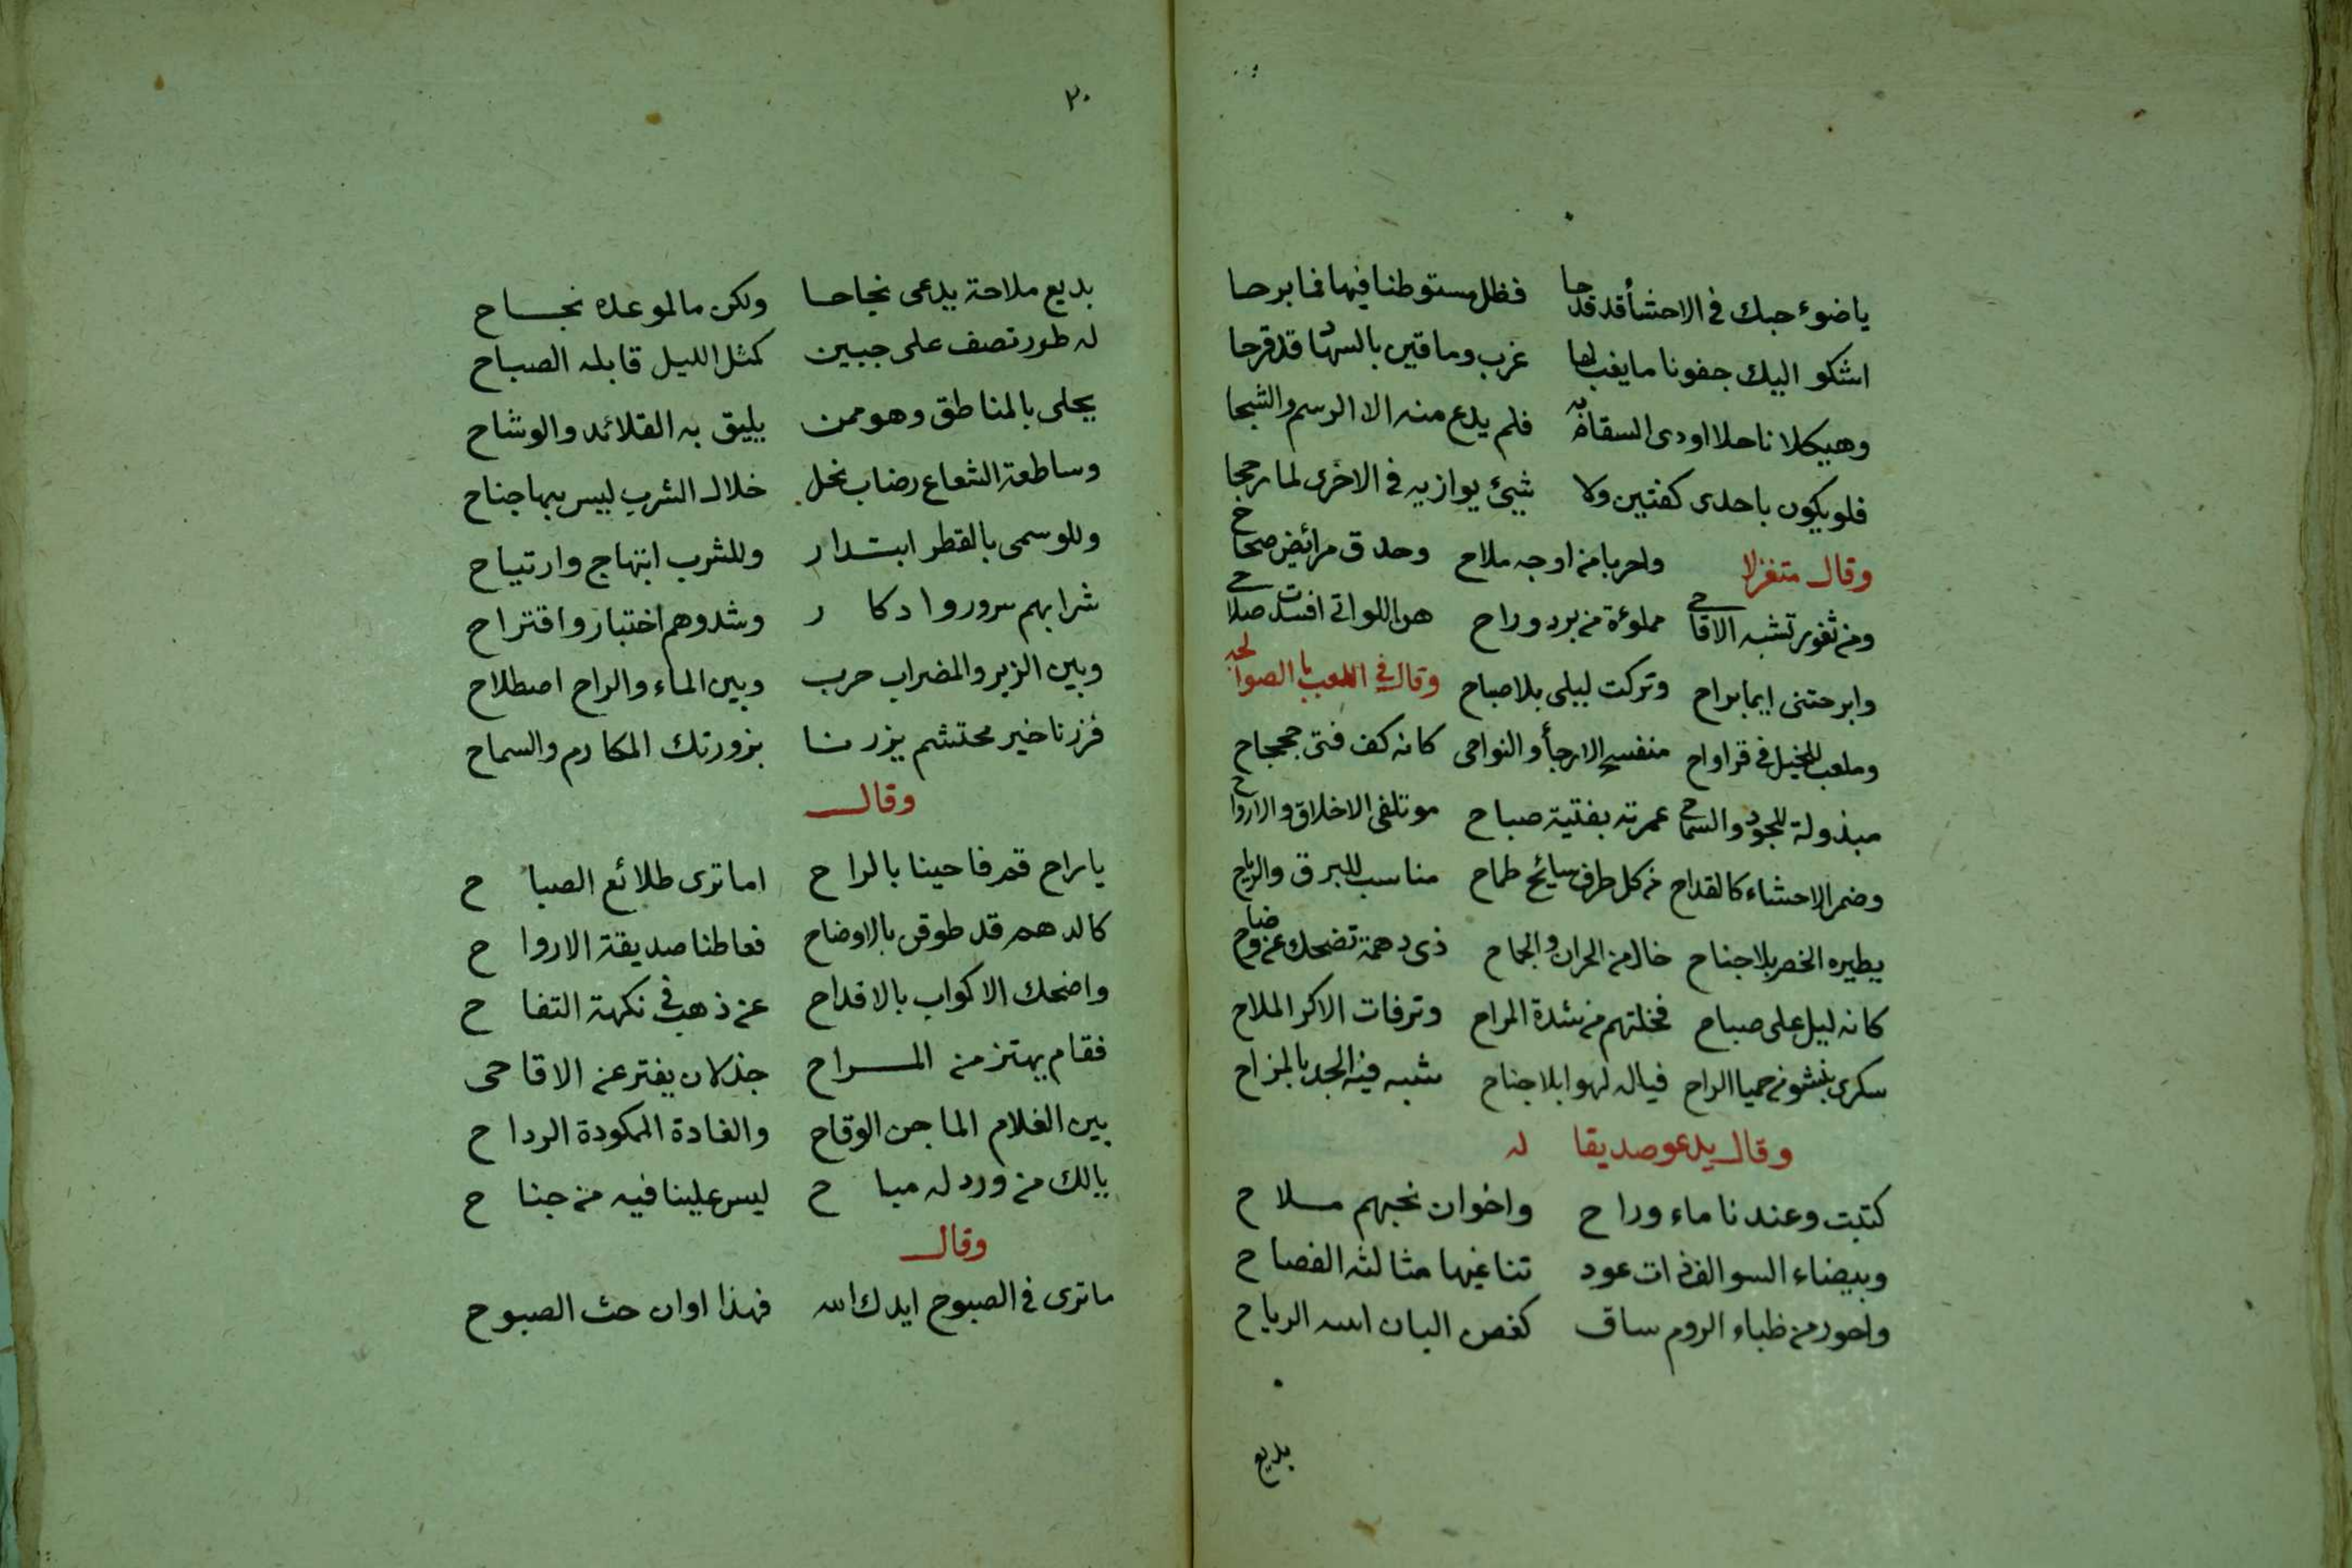 ياضوء حبك في الاحشأ قد قدحا فظل مستوطنا فيها فما برحا
اشكو اليك جفونا ما يغب لها غرب وماقين بالسهاد قد قرحا
وهيكلا ناحلا اودى السقام به فلم يدع منه الا الرسم والشبحا
فلو يكون باحدى كفتين ولا شيئ يوازيه في الاخرى لما رجحا
وقال متغزلا واحربا من اوجه ملاح وحدق مرائض صحاح
ومن ثغور تشبه الاقاحي مملوءة من برد وراح هن اللواتي افسدت صلاحي
وابرحتني ايما براح وتركت ليلى بلا صباح وقال في اللعب بالصوالجه
وملعب للخيل في قراواح منفسح الارجأ والنواحي كانه كف فتى جحجاح
مبذولة للجود والسماح عمرته بفتية صباح موتلفى الاخلاق والارواح
وضمر الاحشاء كالقداح من كل طرف سايح طماح مناسب للبرق والرياح
يطيره الخصر بلا جناح خال من الحران والجماح ذي دهمة تضحك عن وضاح
كانه ليل على صباح فخلتهم من شدة المراح وترفات الاكر الملاح
سكرى بنشو من حميا الراح فياله لهوا بلا جناح شبه فيه الجد بالمزاح
وقال يدعو صديقا له
كتبت وعندنا ماء وراح واخوان نحبهم ملاح
وبيضاء السوالف ذات عود تناغيها مثالثه الفصاح
واحور من ظباء الروم ساق كغصن البان الرياح
بديع
٢٠
بديع ملاحة يدعى نجاحا ولكن ما لموعده نجاح
له طور تصف على جبين كمثل الليل قابله الصباح
يحلى بالمناطق وهو ممن يليق به القلائد والوشاح
وساطعة الشعاع رضاب نحل خلال الشرب ليس بها جناح
وللوسمى بالقطر ابتدار وللشرب ابتهاج وارتياح
شرابهم سرور وادكار وشدوهم اختبار واقتراح
وبين الزير والمضراب حرب وبين الماء والراح اصطلاح
فزرنا خير محتشم يزرنا بزورتك المكارم والسماح
وقال
ياراح قم فاحينا بالراح اما ترى طلائع الصباح
كالدهم قد طوقن بالاوضاح فعاطنا صديقة الارواح
واضحك الاكواب بالاقداح عن ذهب في نكهة التفاح
فقام يهتز من المراح جذلان يفتر عن الاقاحى
بين الغلام الماجن الوقاح والغادة الممكودة الرداح
يالك من ورد له مباح ليس علينا فيه من جناح
وقال
ما ترى في الصبوح ايدك الله فهذا اوان حث الصبوح